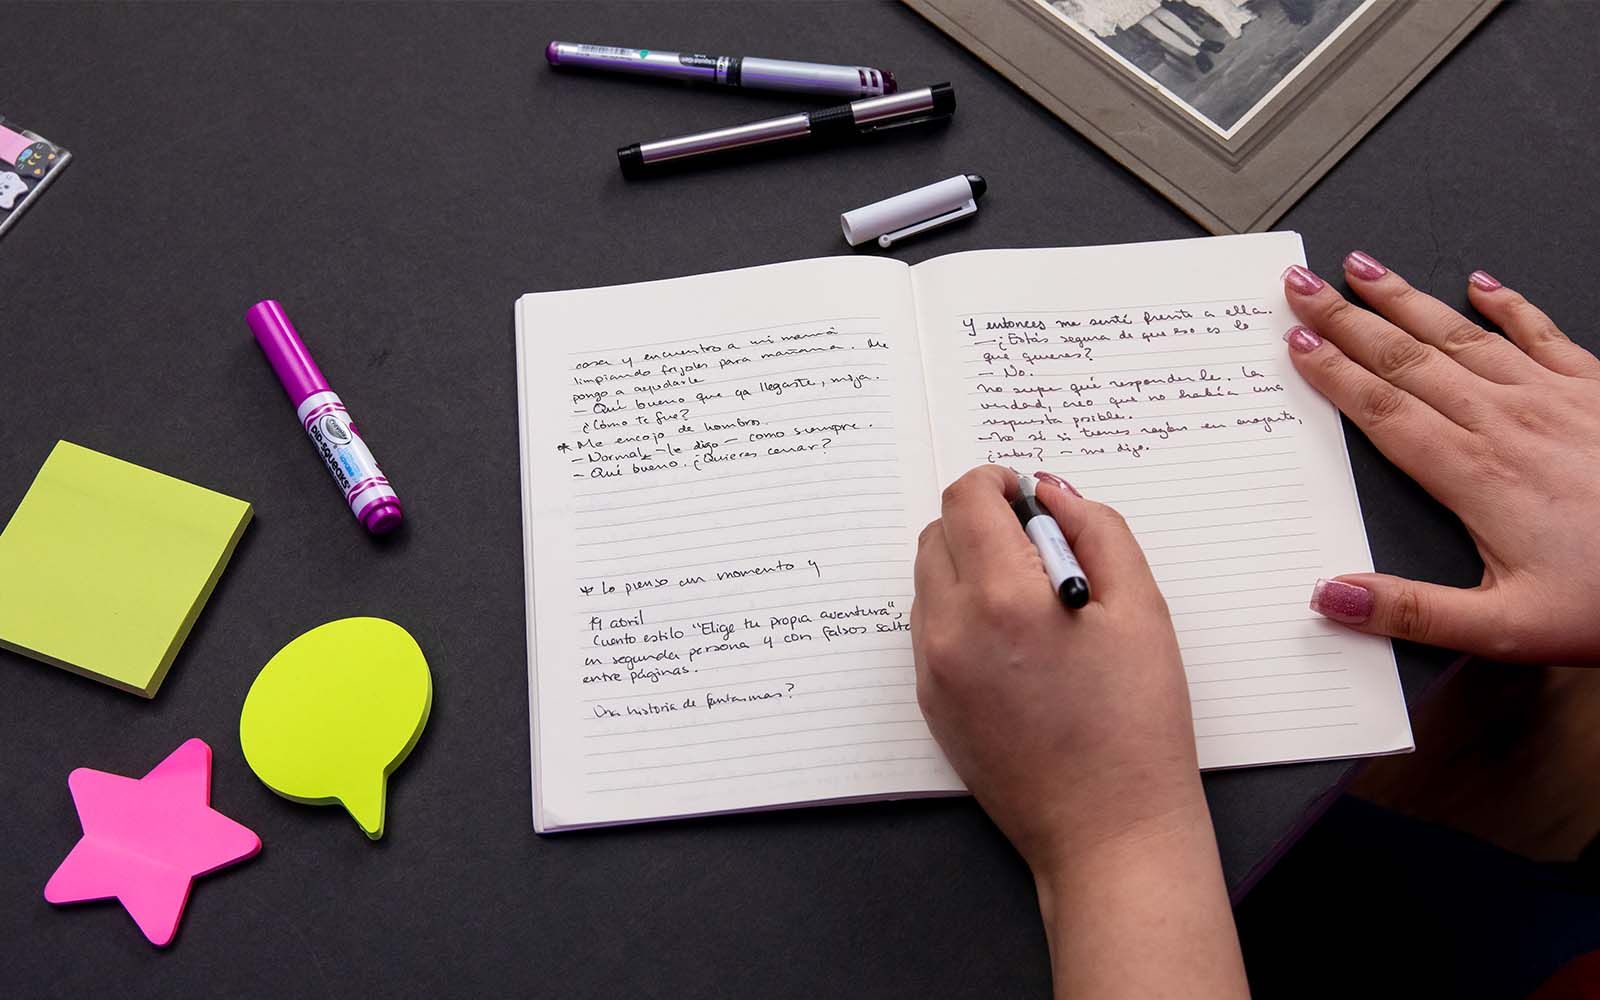 casa y encuentro a mi mamá
limpiando frijoles para mañana. Me
pongo a ayudarle
– Qué bueno que ya llegaste, mija.
¿Cómo te fue?
* Me encojo de hombros.
– Normal – le digo – como siempre.
– Qué bueno. ¿Quieres cenar?
* Lo pienso un momento y
19 abril
Cuento estilo "Elige tu propia aventura",
en segunda persona y con falsos salto
entre páginas.
Una historia de fantasmas?
Y entonces me senté frente a ella.
— ¿Estás segura de que eso es lo
que quieres?
– No.
No supe qué responderle. La
verdad, creo que no había una
respuesta posible.
– No sé si tienes razón en enojarte,
¿sabes? – me dijo.
Crayola
PIP-SQUEAKS